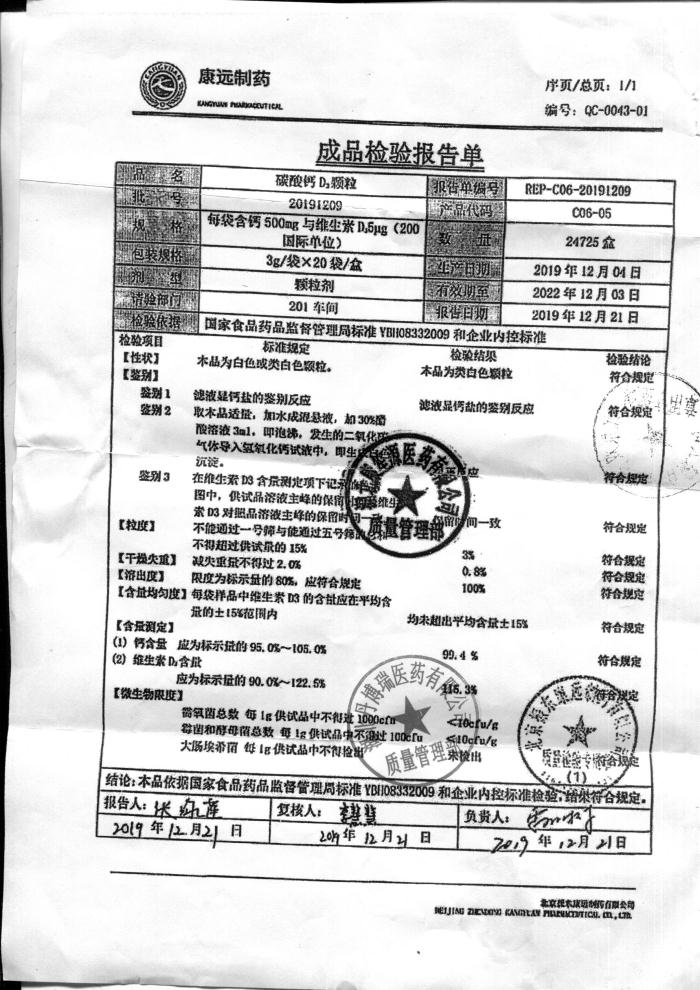 康远制药
KANGYUAN PHARMACEUTICAL
序页/总页：1/1
编号：QC-0043-01
成品检验报告单
品 名 碳酸钙D₃颗粒 报告单编号 REP-C06-20191209
批 号 20191209 产品代码 C06-05
规 格 每袋含钙500mg与维生素D₃5μg（200国际单位） 数 量 24725盒
包装规格 3g/袋×20袋/盒 生产日期 2019年12月04日
剂 型 颗粒剂 有效期至 2022年12月03日
请验部门 201车间 报告日期 2019年12月21日
检验依据 国家食品药品监督管理局标准YBH08332009和企业内控标准
检验项目 标准规定 检验结果 检验结论
【性状】 本品为白色或类白色颗粒。 本品为类白色颗粒 符合规定
【鉴别】
鉴别1 滤液显钙盐的鉴别反应 滤液显钙盐的鉴别反应 符合规定
鉴别2 取本品适量，加水成混悬液，加30%醋
酸溶液3ml，即泡沸，发生的二氧化碳
气体导入氢氧化钙试液中，即生成
沉淀。 反应 符合规定
鉴别3 在维生素D3含量测定项下记录的
图中，供试品溶液主峰的保留 维生
素D3对照品溶液主峰的保留时间一致 保留时间一致 符合规定
【粒度】 不能通过一号筛与能通过五号筛
不得超过供试量的15% 3% 符合规定
【干燥失重】 减失重量不得过2.0% 0.8% 符合规定
【溶出度】 限度为标示量的80%，应符合规定 100% 符合规定
【含量均匀度】 每袋样品中维生素D3的含量应在平均含
量的±15%范围内 均未超出平均含量±15% 符合规定
【含量测定】
(1) 钙含量 应为标示量的95.0%～105.0% 99.4% 符合规定
(2) 维生素D₃含量
应为标示量的90.0%～122.5% 116.3% 符合规定
【微生物限度】
需氧菌总数 每1g供试品中不得过1000cfu <10cfu/g
霉菌和酵母菌总数 每1g供试品中不得过100cfu <10cfu/g
大肠埃希菌 每1g供试品中不得检出 未检出
质量管理部
丹博瑞医药有限公司
质量管理部
(1)
结论：本品依据国家食品药品监督管理局标准YBH08332009和企业内控标准检验，结果符合规定。
报告人： 复核人： 负责人：
2019年12月21日 2019年12月21日 2019年12月21日
北京振东康远制药有限公司
BEIJING ZHENDONG KANGYUAN PHARMACEUTICAL CO., LTD.